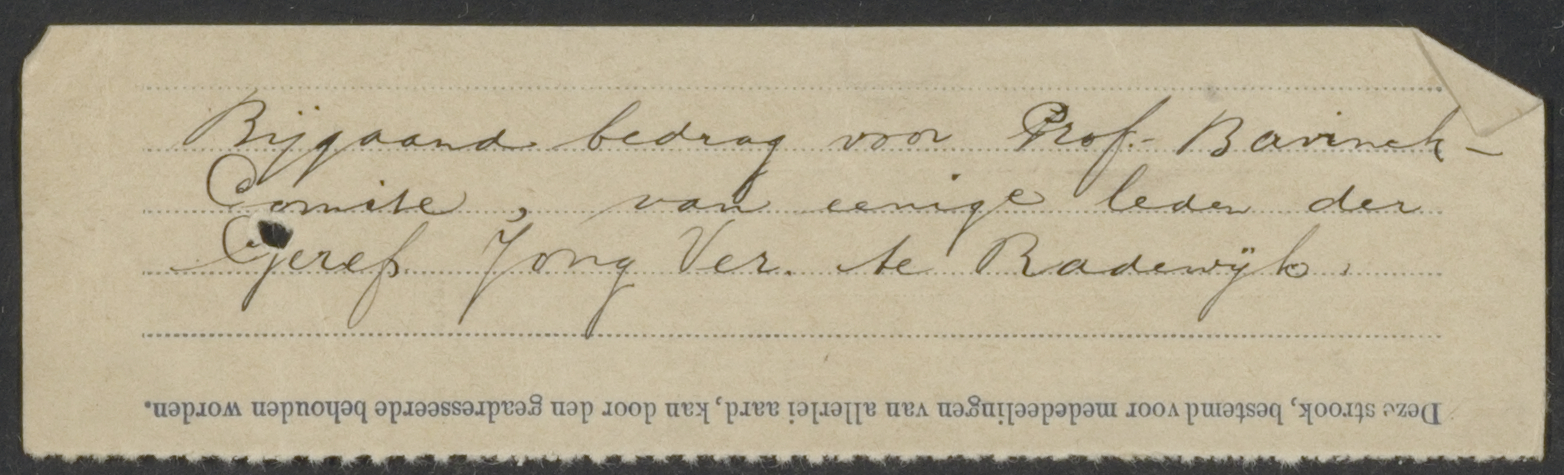 Bijgaand bedrag voor Prof. - Bavinck -
Comite, van eenige leden der
Geref Jong Ver. te Radewijk.
Deze strook, bestemd voor mededeelingen van allerlei aard, kan door den geadresseerde behouden worden.